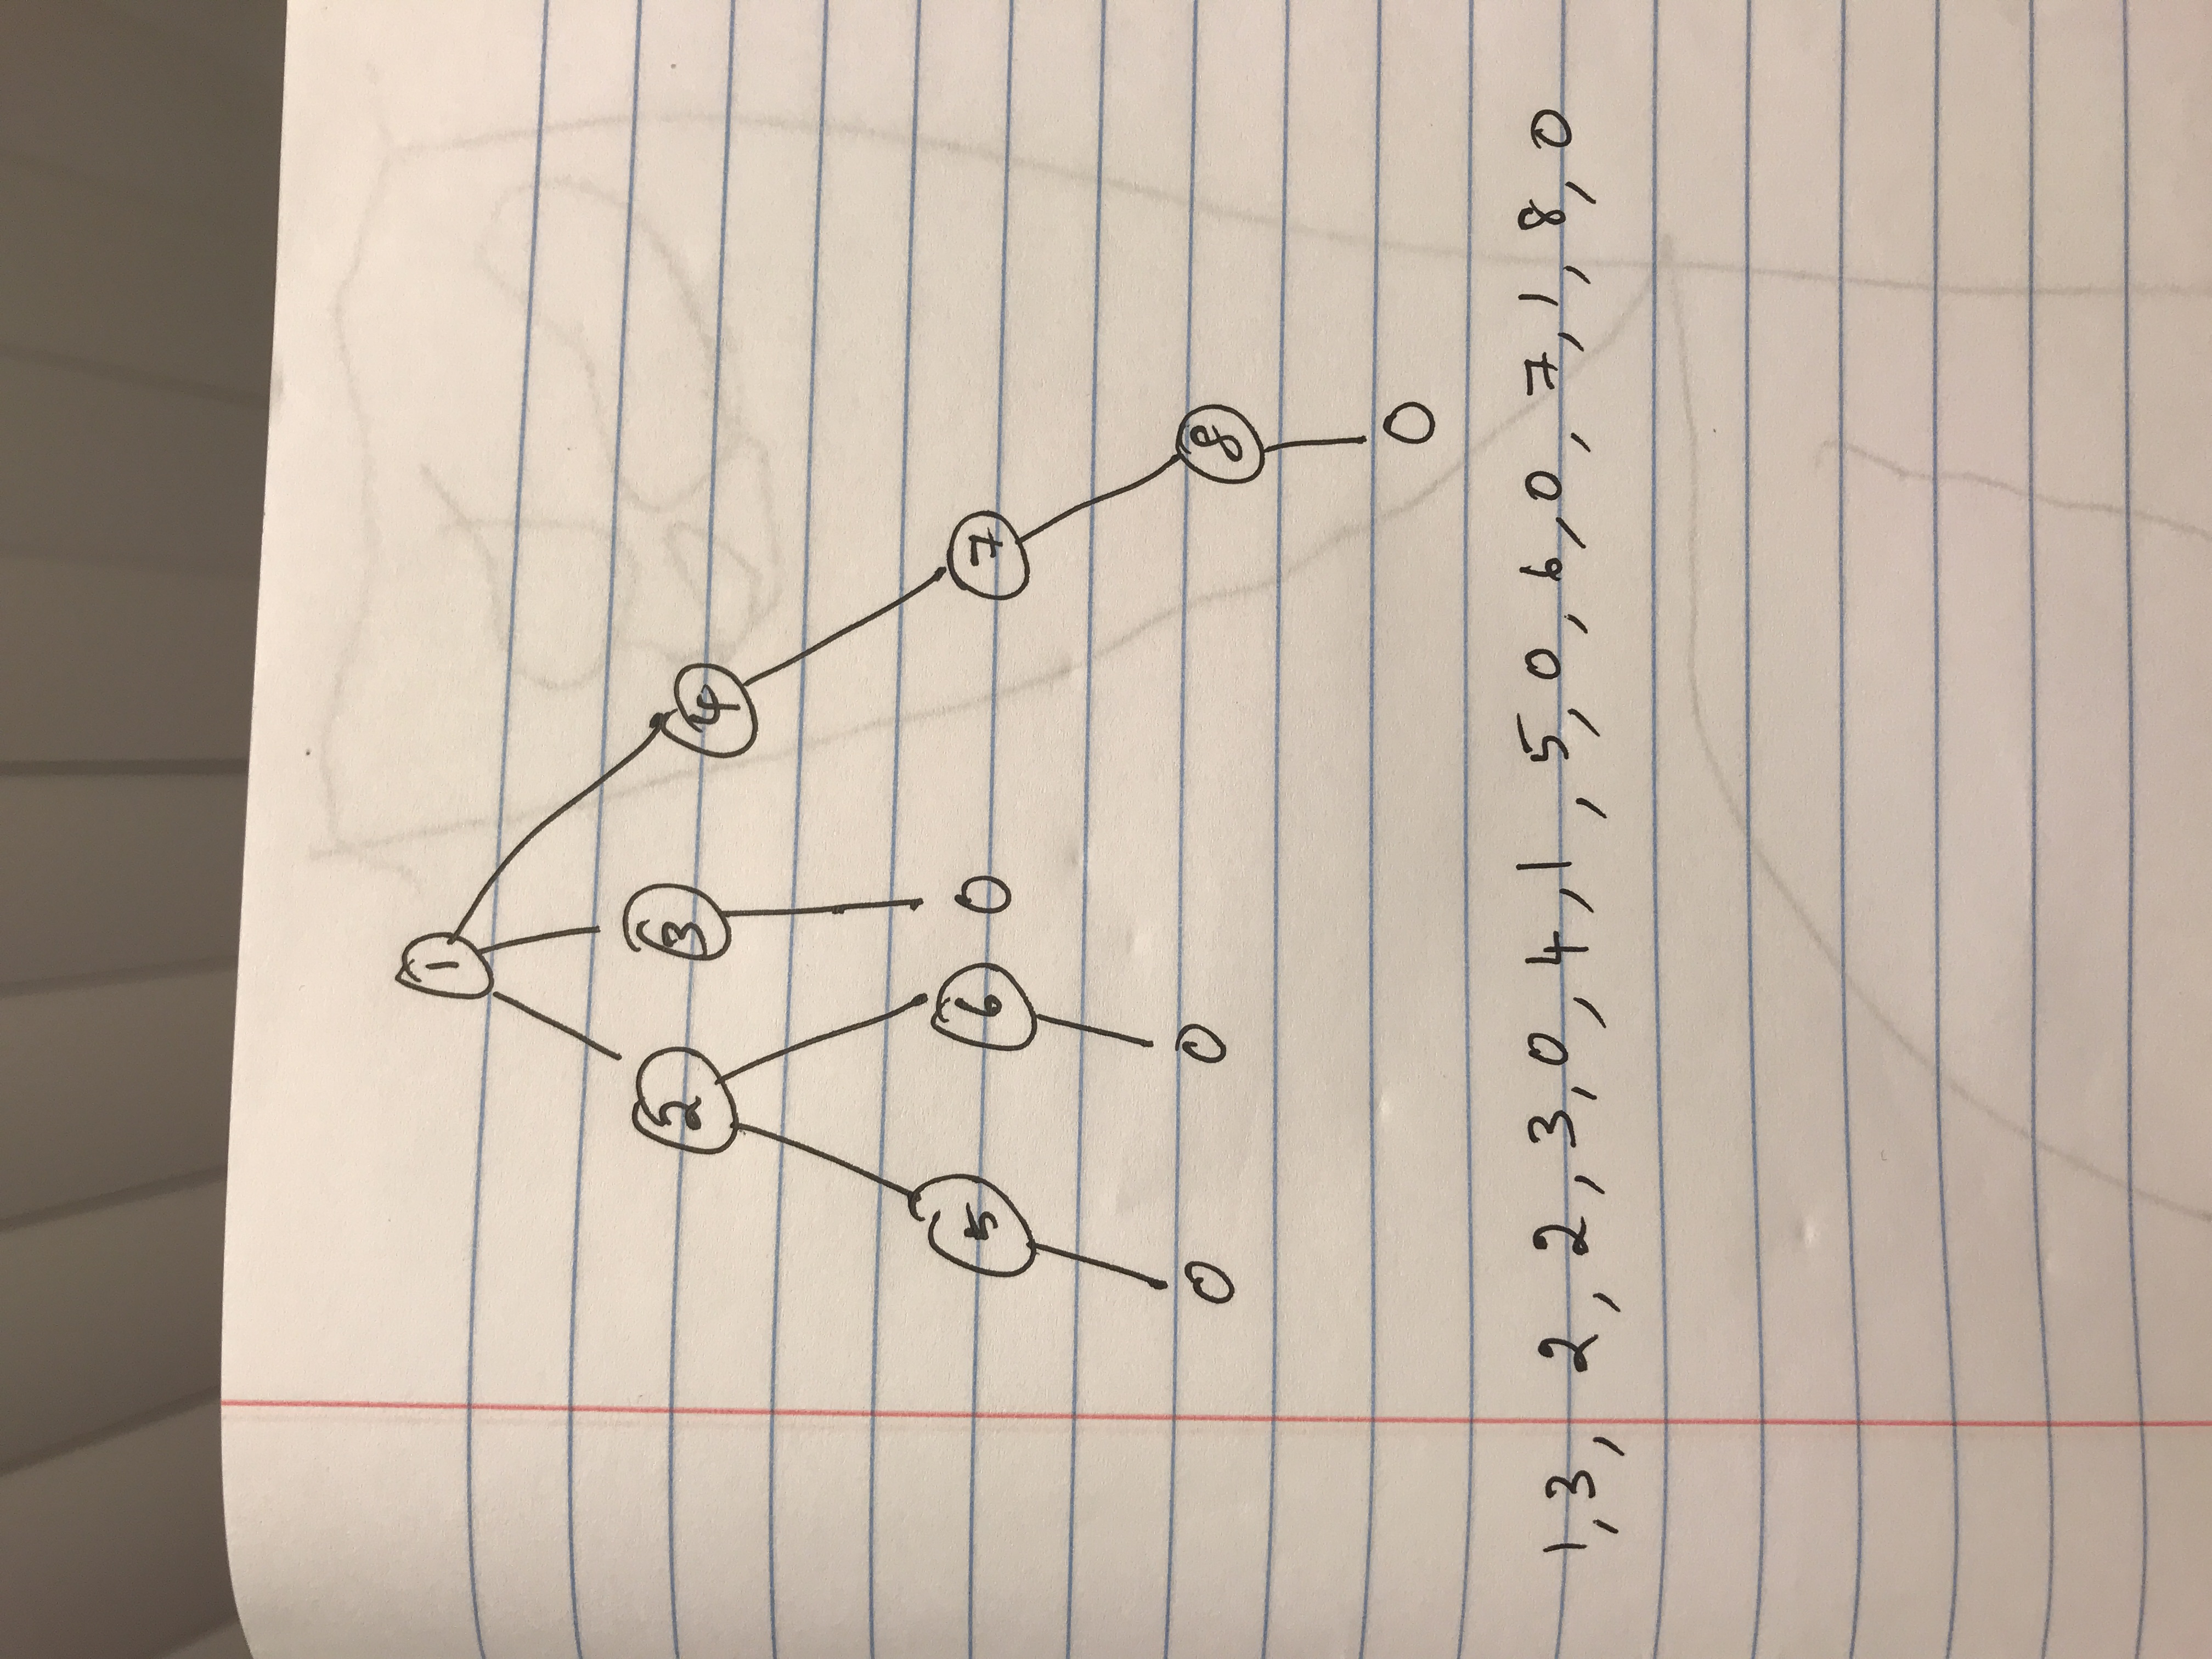 1
2 3 4
5 6 0 7
0 0 8
0
1,3, 2, 2, 3, 0, 4, 1, 5, 0, 6, 0, 7, 1, 8, 0